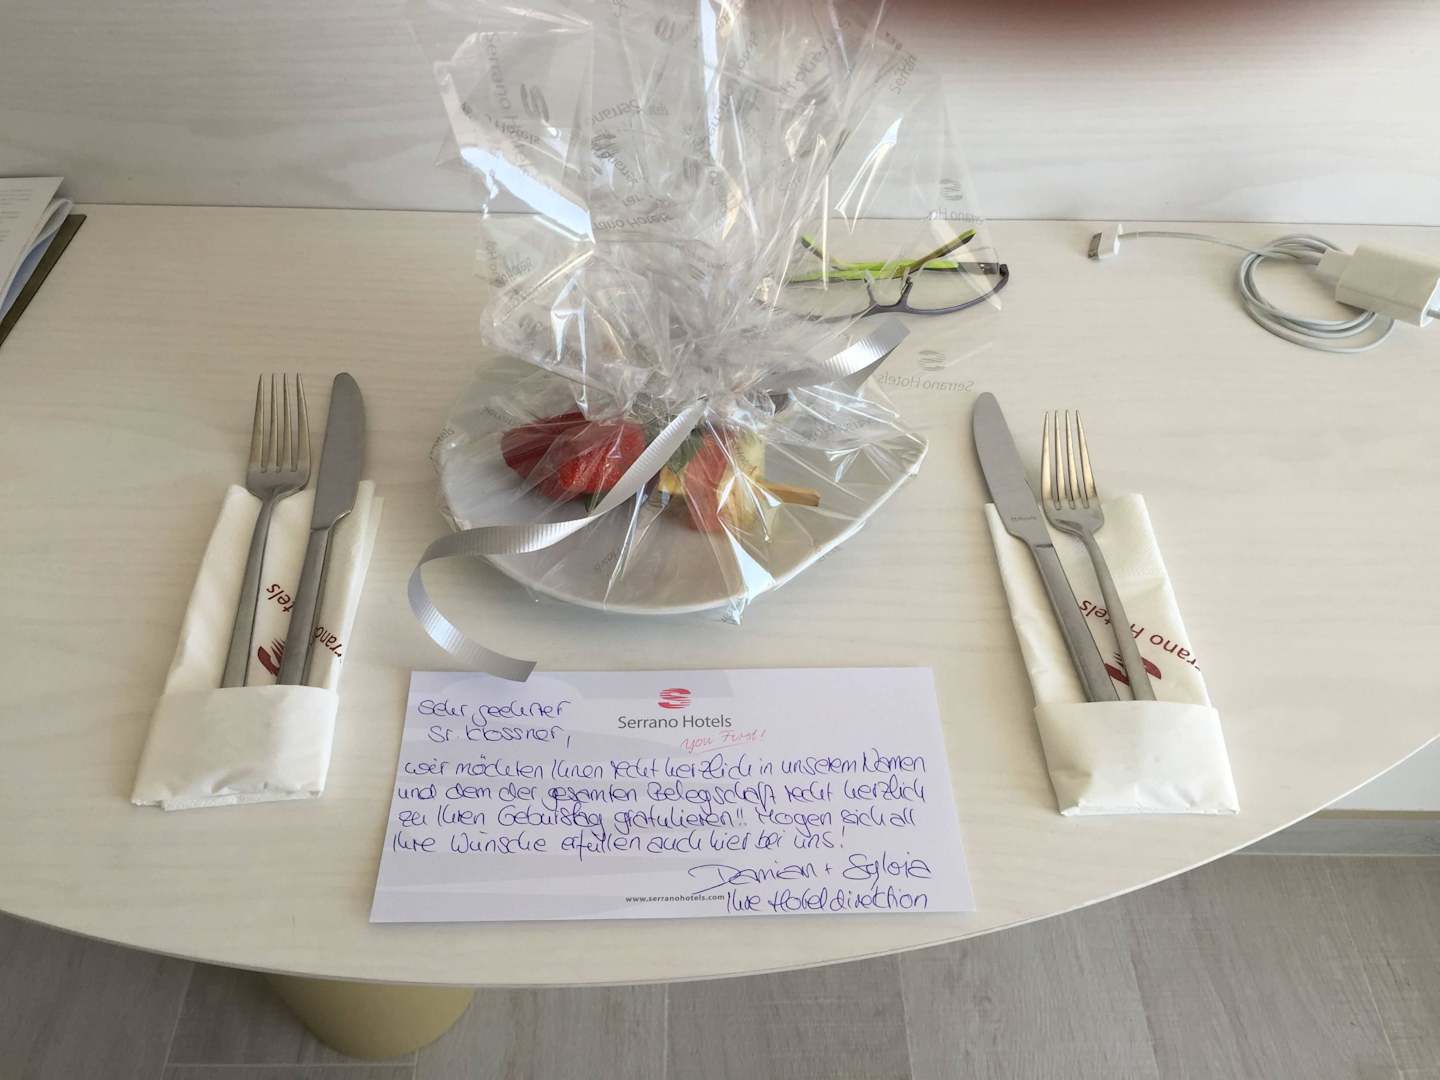 Serrano Hotels
Serrano Hotels
Serrano Hotels
Serrano Hotels
Sehr geehrter
Sr. Klossner,
Serrano Hotels
you First!
wir möchten Ihnen recht herzlich in unserem Namen
und dem der gesamten Belegschaft recht herzlich
zu Ihren Geburtstag gratulieren!! Mögen sich all
Ihre Wünsche erfüllen auch hier bei uns!
Damian + Sylvia
www.serranohotels.com
Ihre Hoteldirektion